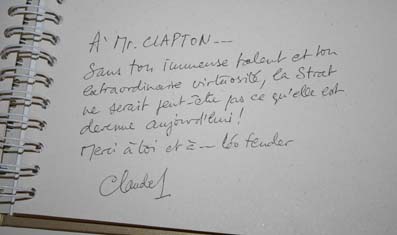 A' Mr. CLAPTON ---
Sans ton immense talent et ton
extraordinaire virtuosité, la Strat
ne serait peut-être pas ce qu'elle est
devenue aujourd'hui !
Merci à toi et à -- Léo Fender
Claude